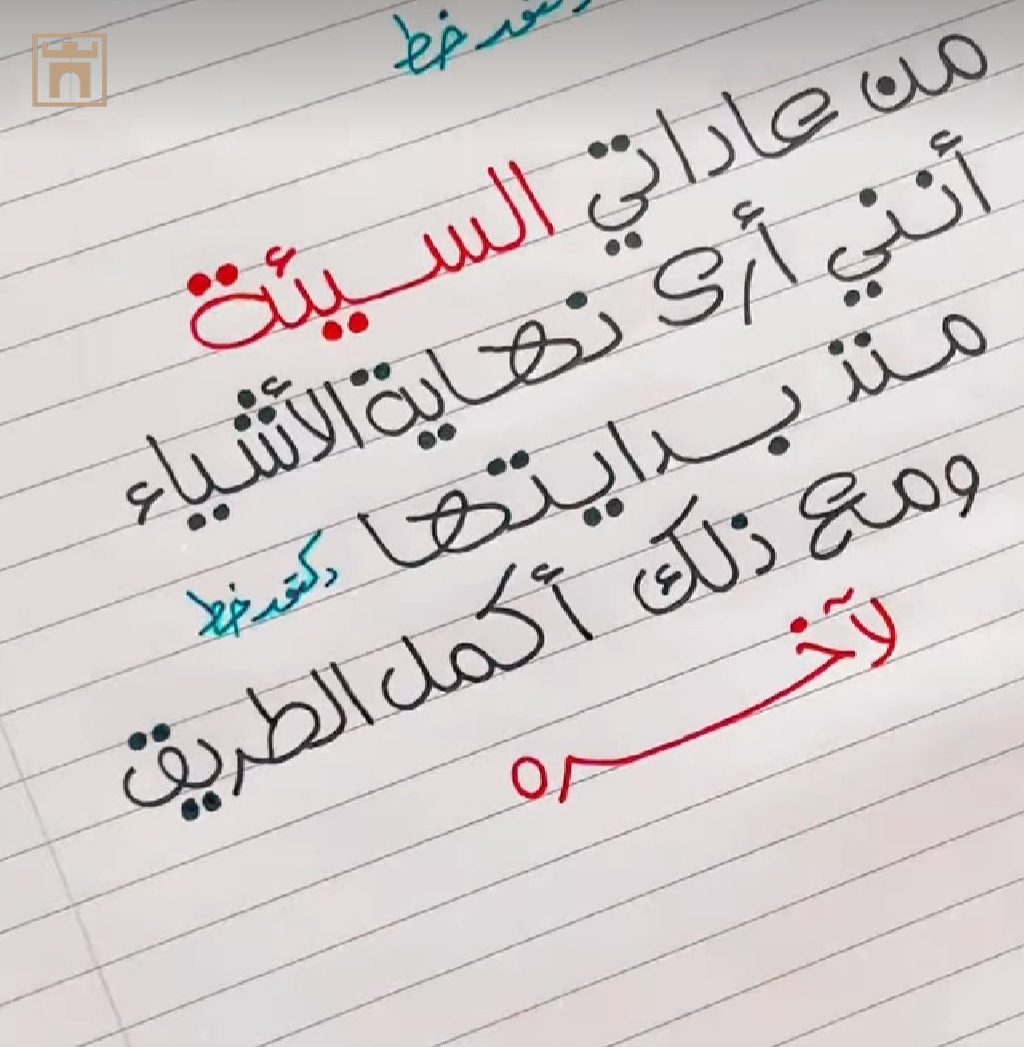 دكتور خط
من عاداتي السيئة
أنني أرى نهاية الأشياء
منذ بدايتها
دكتور خط
ومع ذلك أكمل الطريق
لآخره